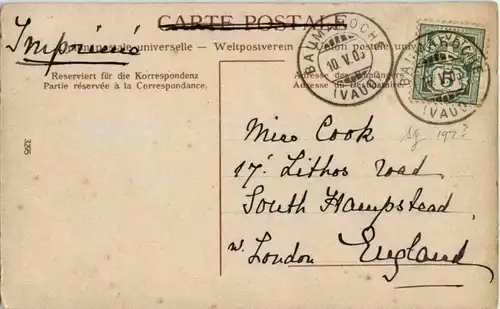 CARTE POSTALE
Imprimé
universelle — Weltpostverein — Union postale
Reserviert für die Korrespondenz
Partie réservée à la Correspondance.
Adresse du Destinataire
BAUMAROCHE
10. V. 05
(VAUD)
BAUMAROCHE
(VAUD)
5
3295
Miss Cook
17. Lithos road
South Hampstead
N. London England